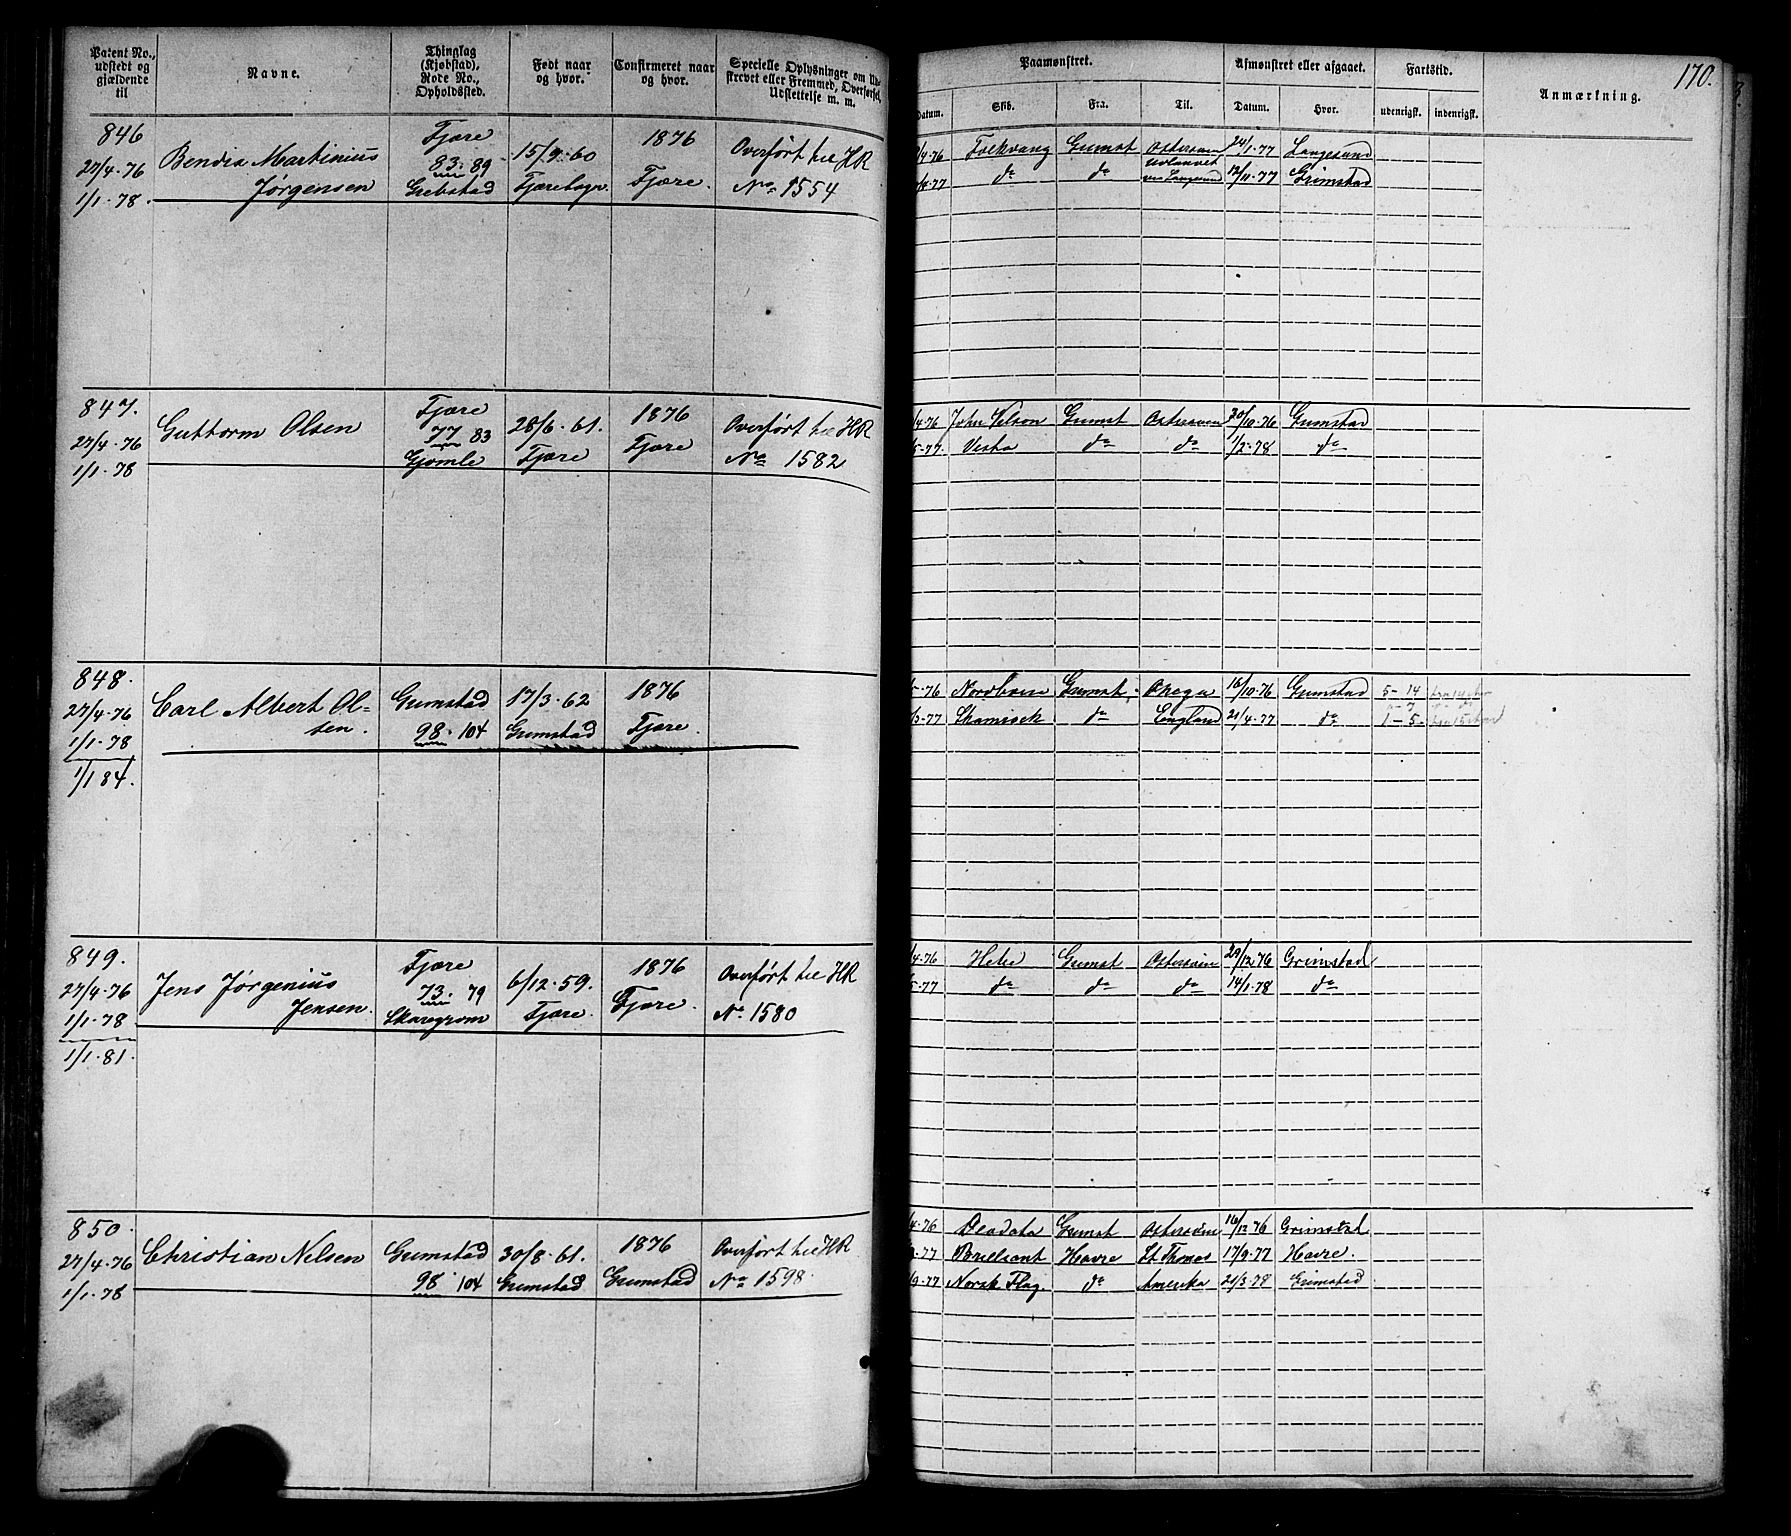 170.
Patent No., udstedt og gjældende til
Navne.
Thinglag (Kjøbstad), Rode No., Opholdssted.
Født naar og hvor.
Confirmeret naar og hvor.
Specielle Oplysninger om Udskrevet eller Fremmed, Overførsel, Udslettelse m. m.
Paamønstret.
Afmønstret eller afgaaet.
Fartstid.
Anmærkning.
Datum.
Skib.
Fra.
Til.
Datum.
Hvor.
udenrigsk.
indenrigsk.
846
27/4-76
1/1-78.
Bendix Martinius
Jørgensen
Fjære
83. 89
Grebstad
15/9-60
Fjære
1876
Fjære.
Overført til HR
No. 1554
4-76 Folkvang Grimst Østersøen 24/1-77 Langesund
4-77 do do 12/11-77 Grimstad
847.
27/4-76
1/1-78
Guttorm Olsen
Fjære
77 83
Gjømle
28/6-61.
Fjære
1876
Fjære
Overført til HR
No 1582
4-76 John Nelson Grimst Østersøen 30/10-76 Grimstad
5-77. Vesta do do 1/2-78 do
848.
27/4-76
1/1-78
1/1 84.
Carl Albert Ol-
sen.
Grimstad
98. 104
17/3-62
Grimstad
1876
Fjære.
5-76 Grimst. 16/10-76 Grimstad 5-14
3-77 do England 21/4-77 do 1-5-
849.
27/4-76
1/1-78
1/1-81.
Jens Jørgenius
Jensen.
Fjære
73. 79
Skaregrøm
6/12-59.
Fjære.
1876
Fjære.
Overført til HR
No. 1580
4-76 Hebe Grimst Østersøen 29/12-76 Grimstad
5-77 do do do 14/1-78 do
850.
27/4-76
1/1-78
Christian Nelsen
Grimstad
98 104
30/8-61.
Grimstad
1876
Grimstad
Overført til HR
No 1598.
4-76 Deodata Grimst Østersøen 16/12-76 Grimstad
-77 Brillsant Havre St Thomas 17/9-77 Havre.
9-77 Norsk Flag. do Amerika 21/3-78 Grimstad